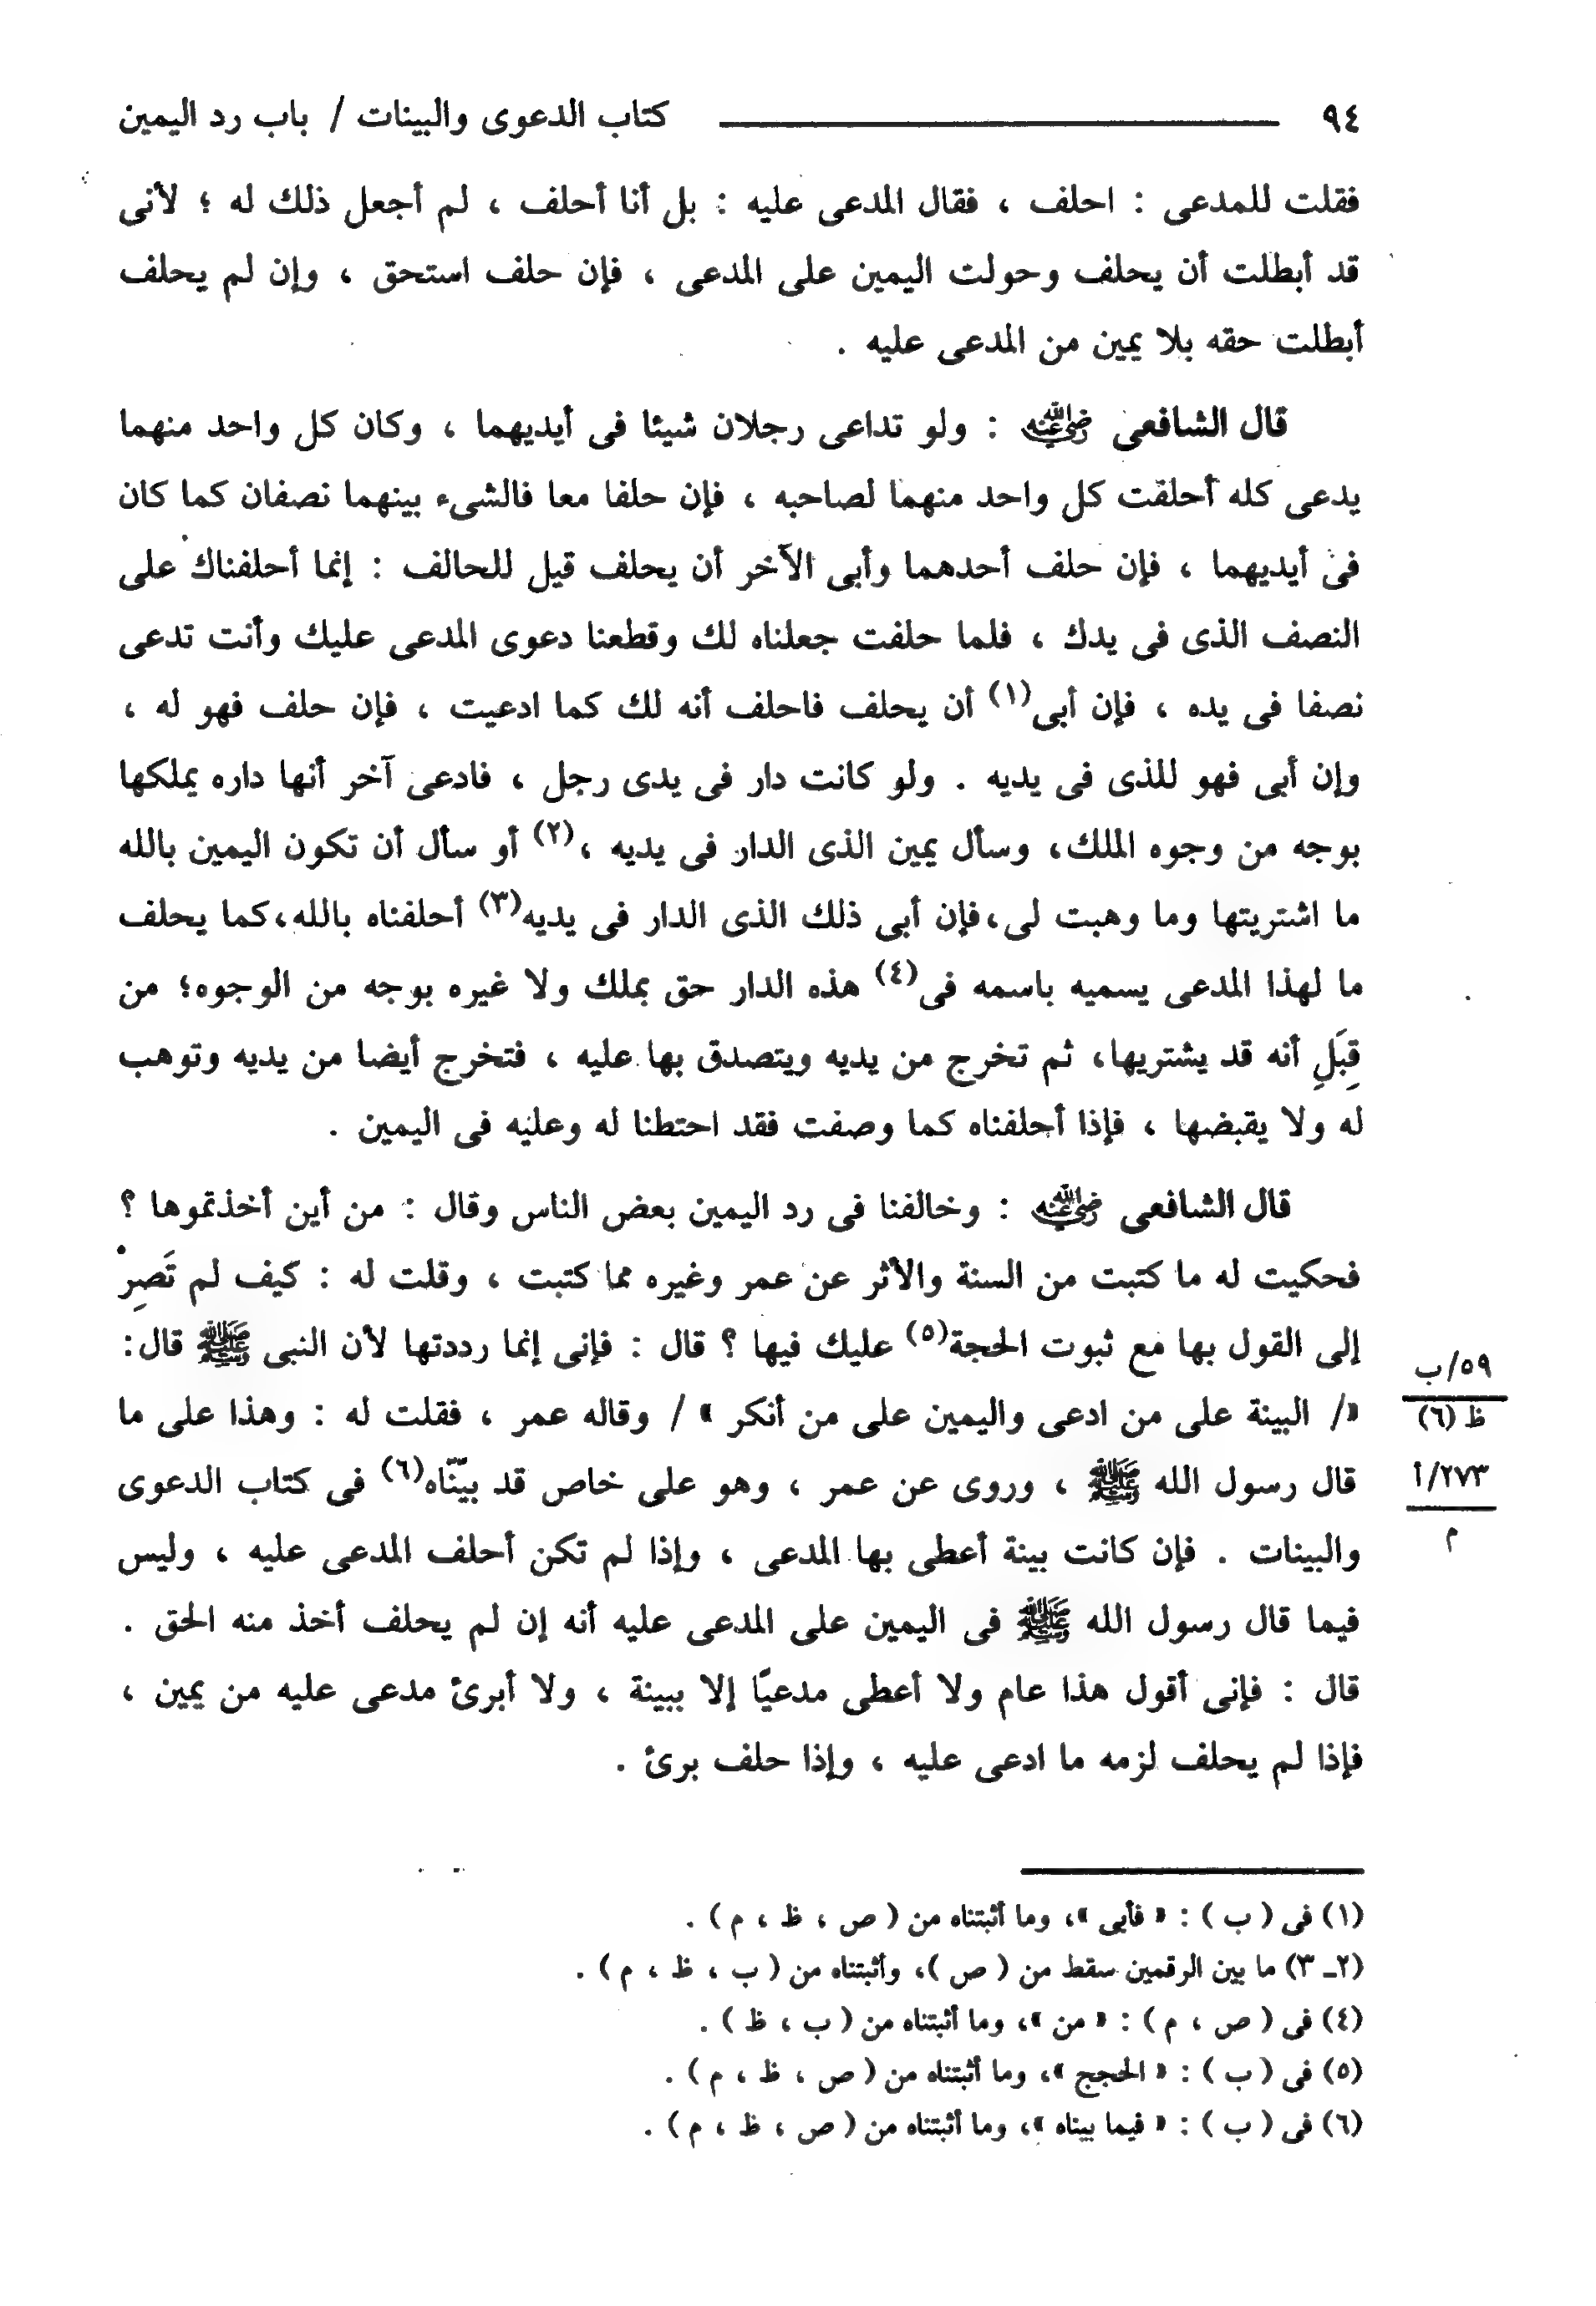 ٩٤ كتاب الدعوى والبينات / باب رد اليمين
فقلت للمدعى : احلف ، فقال المدعى عليه : بل أنا أحلف ، لم أجعل ذلك له ؛ لأنى
قد أبطلت أن يحلف وحولت اليمين على المدعى ، فإن حلف استحق ، وإن لم يحلف
أبطلت حقه بلا يمين من المدعى عليه .
قال الشافعى رضي الله عنه : ولو تداعى رجلان شيئا فى أيديهما ، وكان كل واحد منهما
يدعى كله أحلفت كل واحد منهما لصاحبه ، فإن حلفا معا فالشىء بينهما نصفان كما كان
فى أيديهما ، فإن حلف أحدهما وأبى الآخر أن يحلف قيل للحالف : إنما أحلفناك على
النصف الذى فى يدك ، فلما حلفت جعلناه لك وقطعنا دعوى المدعى عليك وأنت تدعى
نصفا فى يده ، فإن أبى(١) أن يحلف فاحلف أنه لك كما ادعيت ، فإن حلف فهو له ،
وإن أبى فهو للذى فى يديه . ولو كانت دار فى يدى رجل ، فادعى آخر أنها داره يملكها
بوجه من وجوه الملك، وسأل يمين الذى الدار فى يديه ،(٢) أو سأل أن تكون اليمين بالله
ما اشتريتها وما وهبت لى،فإن أبى ذلك الذى الدار فى يديه(٣) أحلفناه بالله،كما يحلف
ما لهذا المدعى يسميه باسمه فى(٤) هذه الدار حق بملك ولا غيره بوجه من الوجوه؛ من
قِبَلِ أنه قد يشتريها، ثم تخرج من يديه ويتصدق بها عليه ، فتخرج أيضا من يديه وتوهب
له ولا يقبضها ، فإذا أحلفناه كما وصفت فقد احتطنا له وعليه فى اليمين .
قال الشافعى رضي الله عنه : وخالفنا فى رد اليمين بعض الناس وقال : من أين أخذتموها ؟
فحكيت له ما كتبت من السنة والأثر عن عمر وغيره مما كتبت ، وقلت له : كيف لم تَصِرْ
إلى القول بها مع ثبوت الحجة(٥) عليك فيها ؟ قال : فإنى إنما رددتها لأن النبى ﷺ قال:
«/ البينة على من ادعى واليمين على من أنكر » / وقاله عمر ، فقلت له : وهذا على ما
قال رسول الله ﷺ ، وروى عن عمر ، وهو على خاص قد بيّنّاه(٦) فى كتاب الدعوى
والبينات . فإن كانت بينة أعطى بها المدعى ، وإذا لم تكن أحلف المدعى عليه ، وليس
فيما قال رسول الله ﷺ فى اليمين على المدعى عليه أنه إن لم يحلف أخذ منه الحق .
قال : فإنى أقول هذا عام ولا أعطى مدعيًا إلا ببينة ، ولا أبرئ مدعى عليه من يمين ،
فإذا لم يحلف لزمه ما ادعى عليه ، وإذا حلف برئ .
٥٩/ب
ظ (٦)
٢٧٣/أ
م
(١) فى ( ب ) : « فأبى »، وما أثبتناه من ( ص ، ظ ، م ) .
(٢ـ ٣) ما بين الرقمين سقط من ( ص )، وأثبتناه من ( ب ، ظ ، م ) .
(٤) فى ( ص ، م ) : « من »، وما أثبتناه من ( ب ، ظ ) .
(٥) فى ( ب ) : « الحجج »، وما أثبتناه من ( ص ، ظ ، م ) .
(٦) فى ( ب ) : « فيما بيناه »، وما أثبتناه من ( ص ، ظ ، م ) .